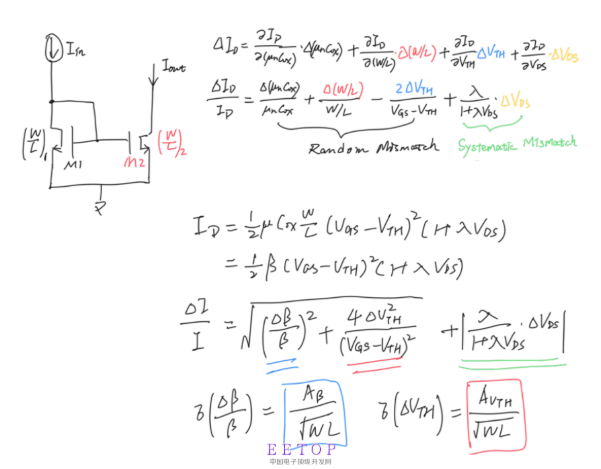 I_in
I_out
ΔI_D = ∂I_D/∂(μnCox) · Δ(μnCox) + ∂I_D/∂(W/L) · Δ(W/L) + ∂I_D/∂V_TH ΔV_TH + ∂I_D/∂V_DS · ΔV_DS
ΔI_D/I_D = Δ(μnCox)/μnCox + Δ(W/L)/W/L − 2ΔV_TH/V_GS−V_TH + λ/1+λV_DS · ΔV_DS
(W/L)_1
M1
M2
(W/L)_2
Random Mismatch
Systematic Mismatch
I_D = 1/2 μ Cox W/L (V_GS−V_TH)^2 (1+λV_DS)
= 1/2 β (V_GS−V_TH)^2 (1+λV_DS)
ΔI/I = √((Δβ/β)^2 + 4ΔV_TH^2/(V_GS−V_TH)^2) + |λ/1+λV_DS · ΔV_DS|
δ(Δβ/β) = A_β/√WL
δ(ΔV_TH) = A_VTH/√WL
EETOP
中国电子顶级开发网